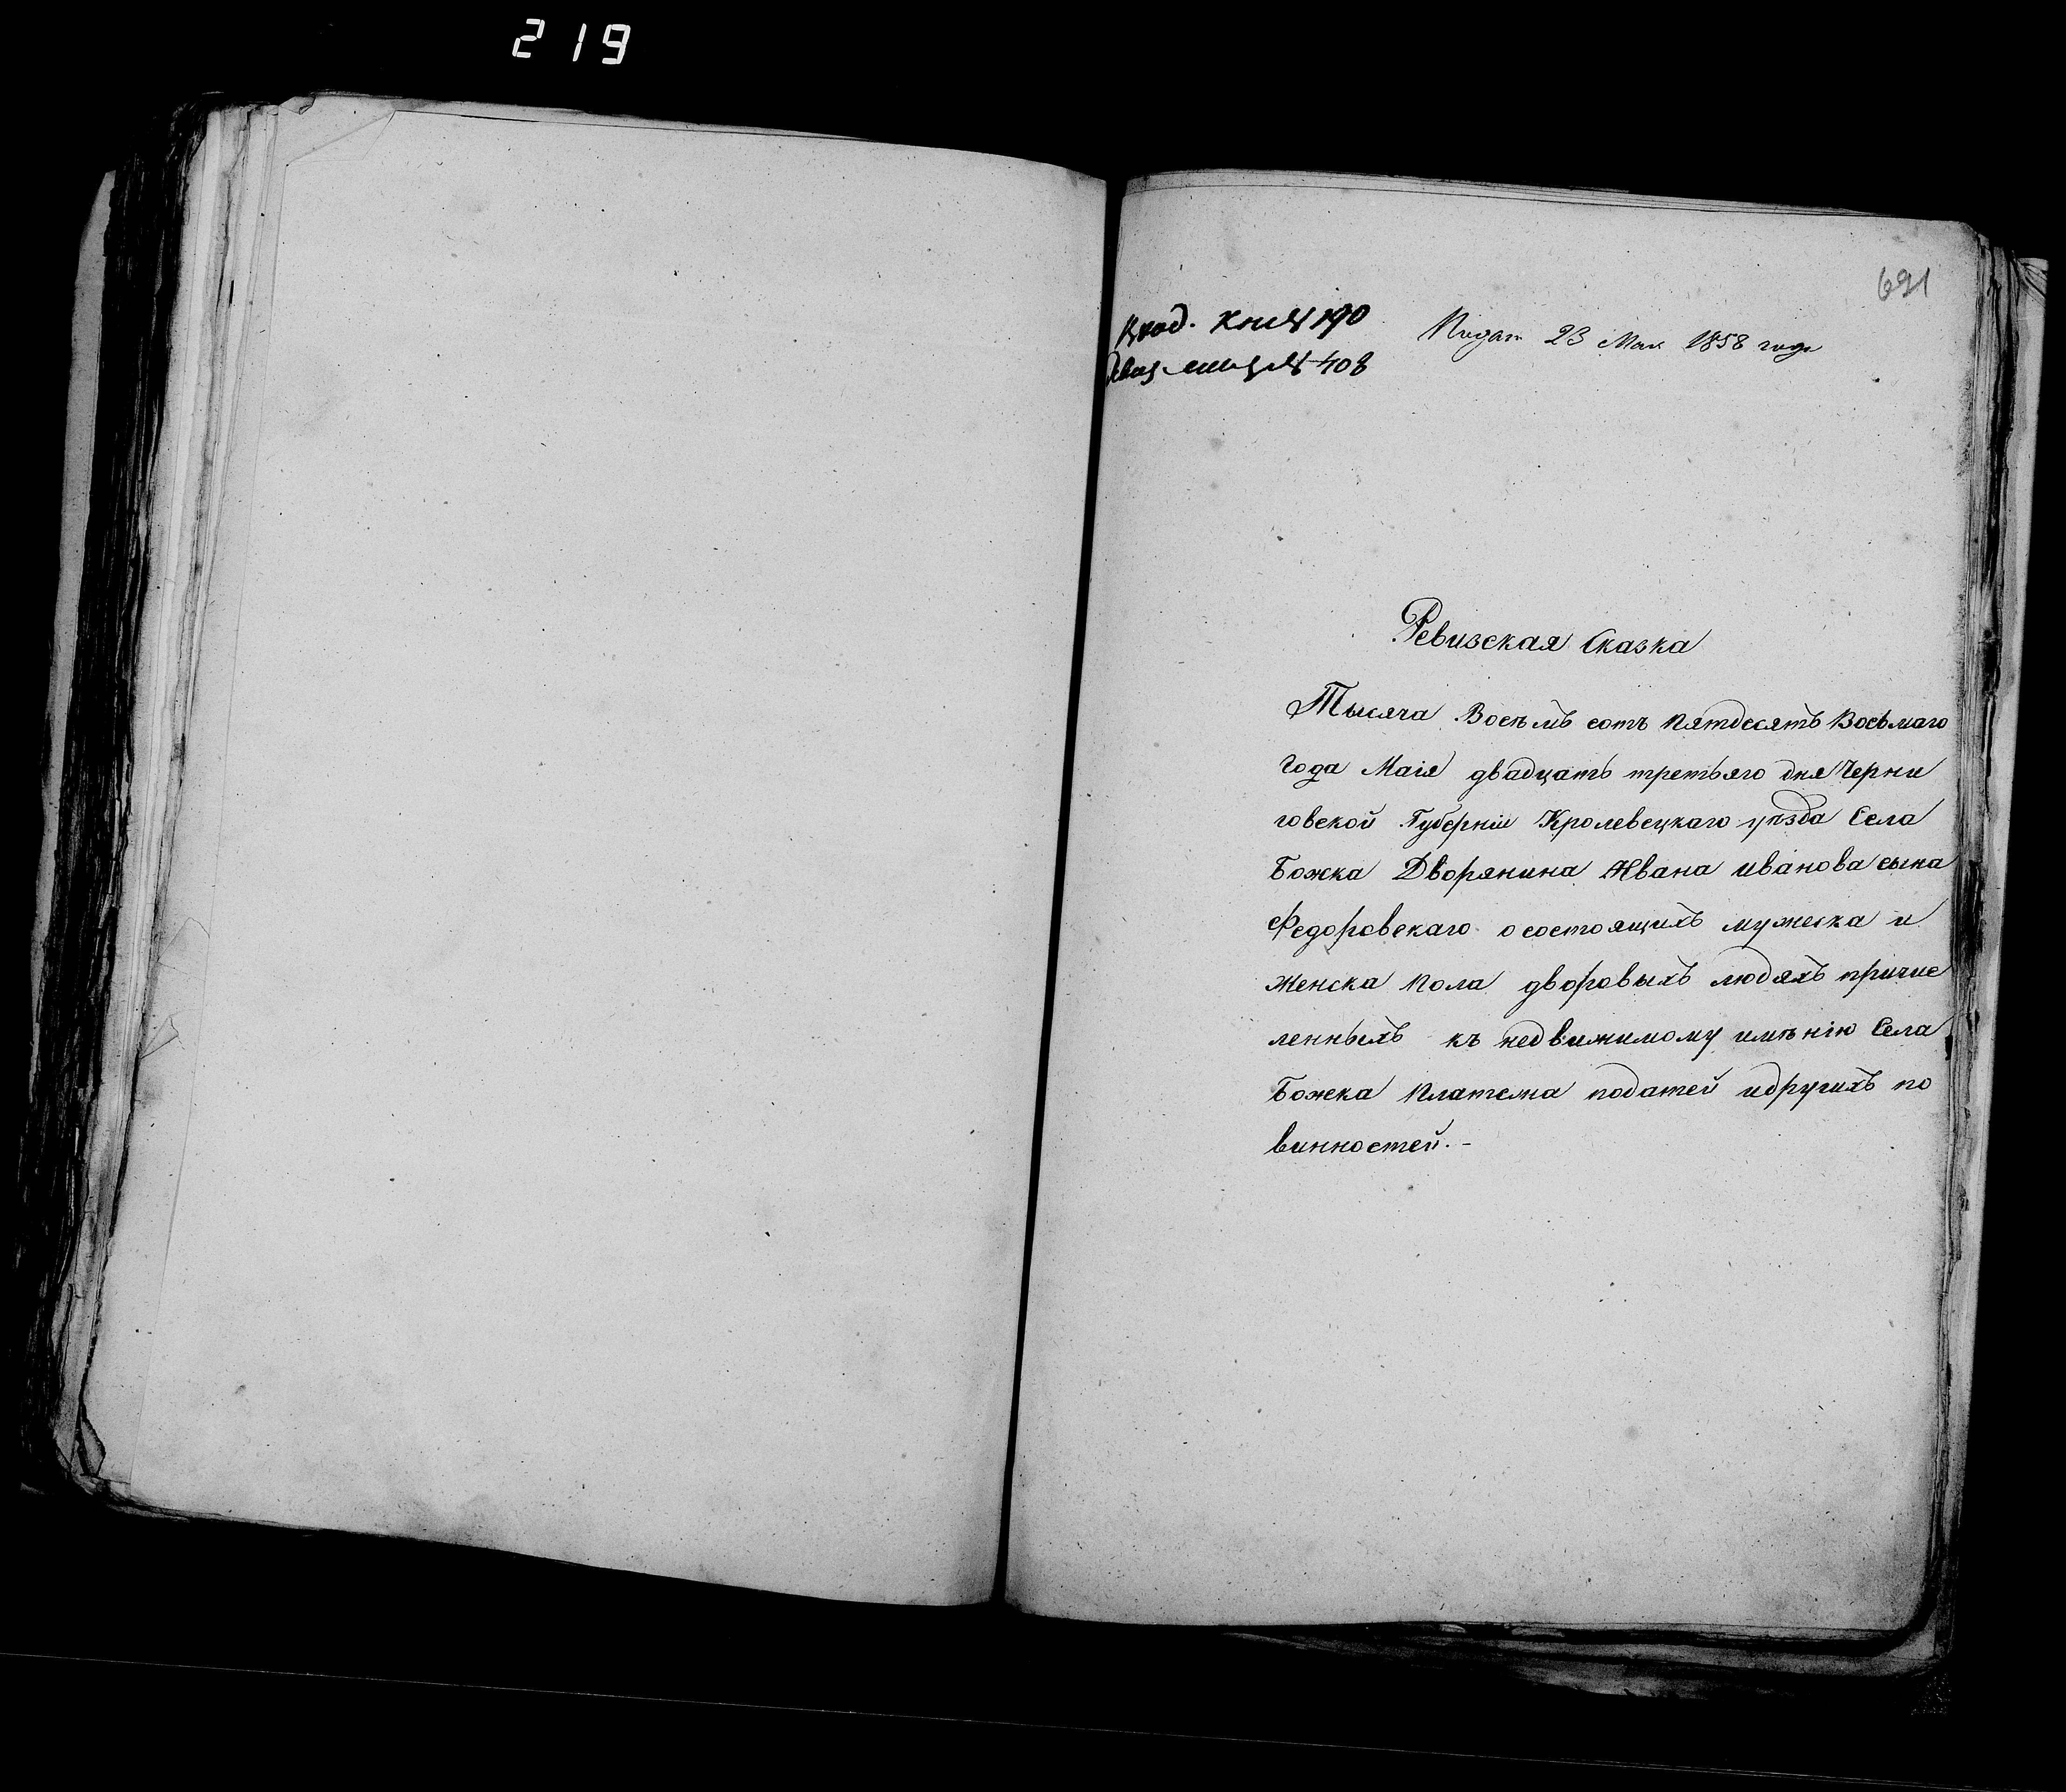 219
691
Вход. Книг № 190
Подат 23 Мая 1858 года
№ 408
Ревизская Сказка
Тысяча Восѣмъ сотъ Пятдесятъ Восьмаго
Года Маія двадцать третьяго дня Черни
говской Губерніи Кролевецкаго уѣзда Села
Божка Дворянина Ивана иванова сына
Федоровскаго о состоящихъ мужеска и
Женска Пола дворовыхъ людяхъ причис
ленныхъ къ недвижимому имѣнію Села
Божка Платежа податей идругихъ по
винностей.-